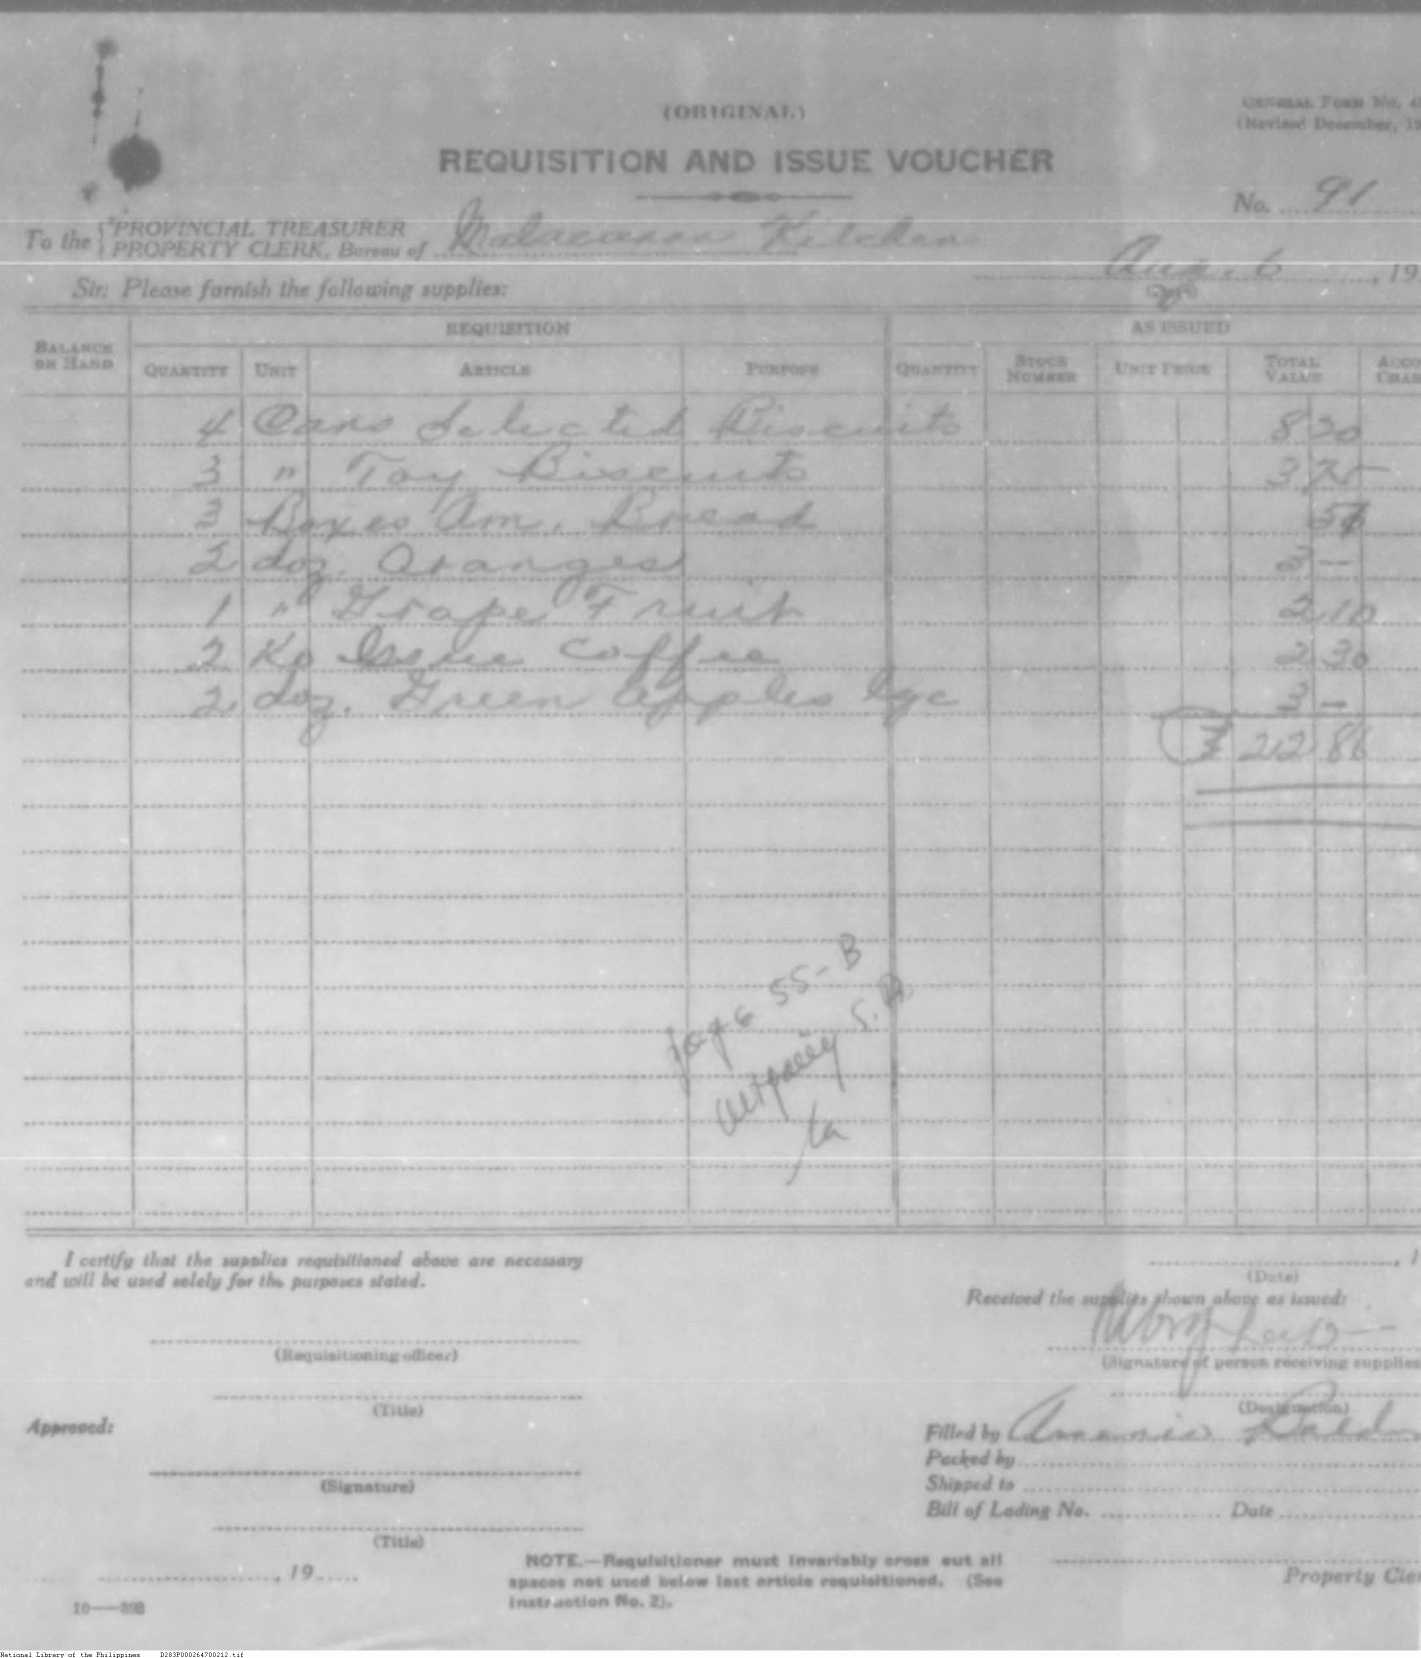 (ORIGINAL)
GENERAL FORM No.
(Revised December, 19
REQUISITION AND ISSUE VOUCHER
No. 91
To the { PROVINCIAL TREASURER
PROPERTY CLERK, Bureau of Malacanan Kitchen
Aug. 6, 19
Sir: Please furnish the following supplies:
REQUISITION AS ISSUED
BALANCE ON HAND QUANTITY UNIT ARTICLE PURPOSE QUANTITY STOCK NUMBER UNIT PRICE TOTAL VALUE ACCO CHAR
4 Cans Selected Biscuits 8 20
3 " Toy Biscuits 3 75
3 Boxes Am. Bread 51
2 doz. Oranges 3 —
1 " Grape Fruit 2 10
2 Ko Issue Coffee 2 30
2 doz. Green Apples lge 3 —
₱ 22 86
page 55-B
S. A.
I certify that the supplies requisitioned above are necessary
and will be used solely for the purposes stated.
(Requisitioning officer)
(Title)
Approved:
(Signature)
(Title)
, 19
10—39B
NOTE.—Requisitioner must invariably cross out all
spaces not used below last article requisitioned. (See
Instruction No. 2).
, 1
(Date)
Received the supplies shown above as issued:
(Signature of person receiving supplies
(Designation)
Filled by
Packed by
Shipped to
Bill of Lading No. Date
Property Cle
National Library of the Philippines D283P000264700212.tif